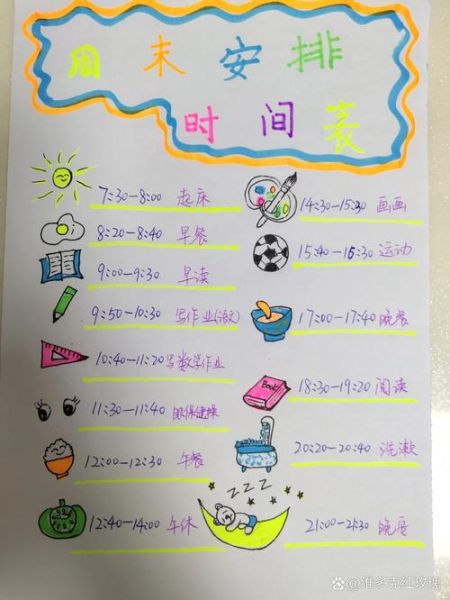 周末安排
时间表
7:30-8:00 起床
8:20-8:40 早餐
9:00-9:30 早读
9:50-10:30 写作业(语文)
10:40-11:20 写数学作业
11:30-11:40 眼保健操
12:00-12:30 午餐
12:40-14:00 午休
14:30-15:30 画画
15:40-16:30 运动
17:00-17:40 晚餐
18:30-19:20 阅读
Book
20:20-20:40 洗漱
ZZZ
21:00-21:30 晚寝
@维多克红玫瑰